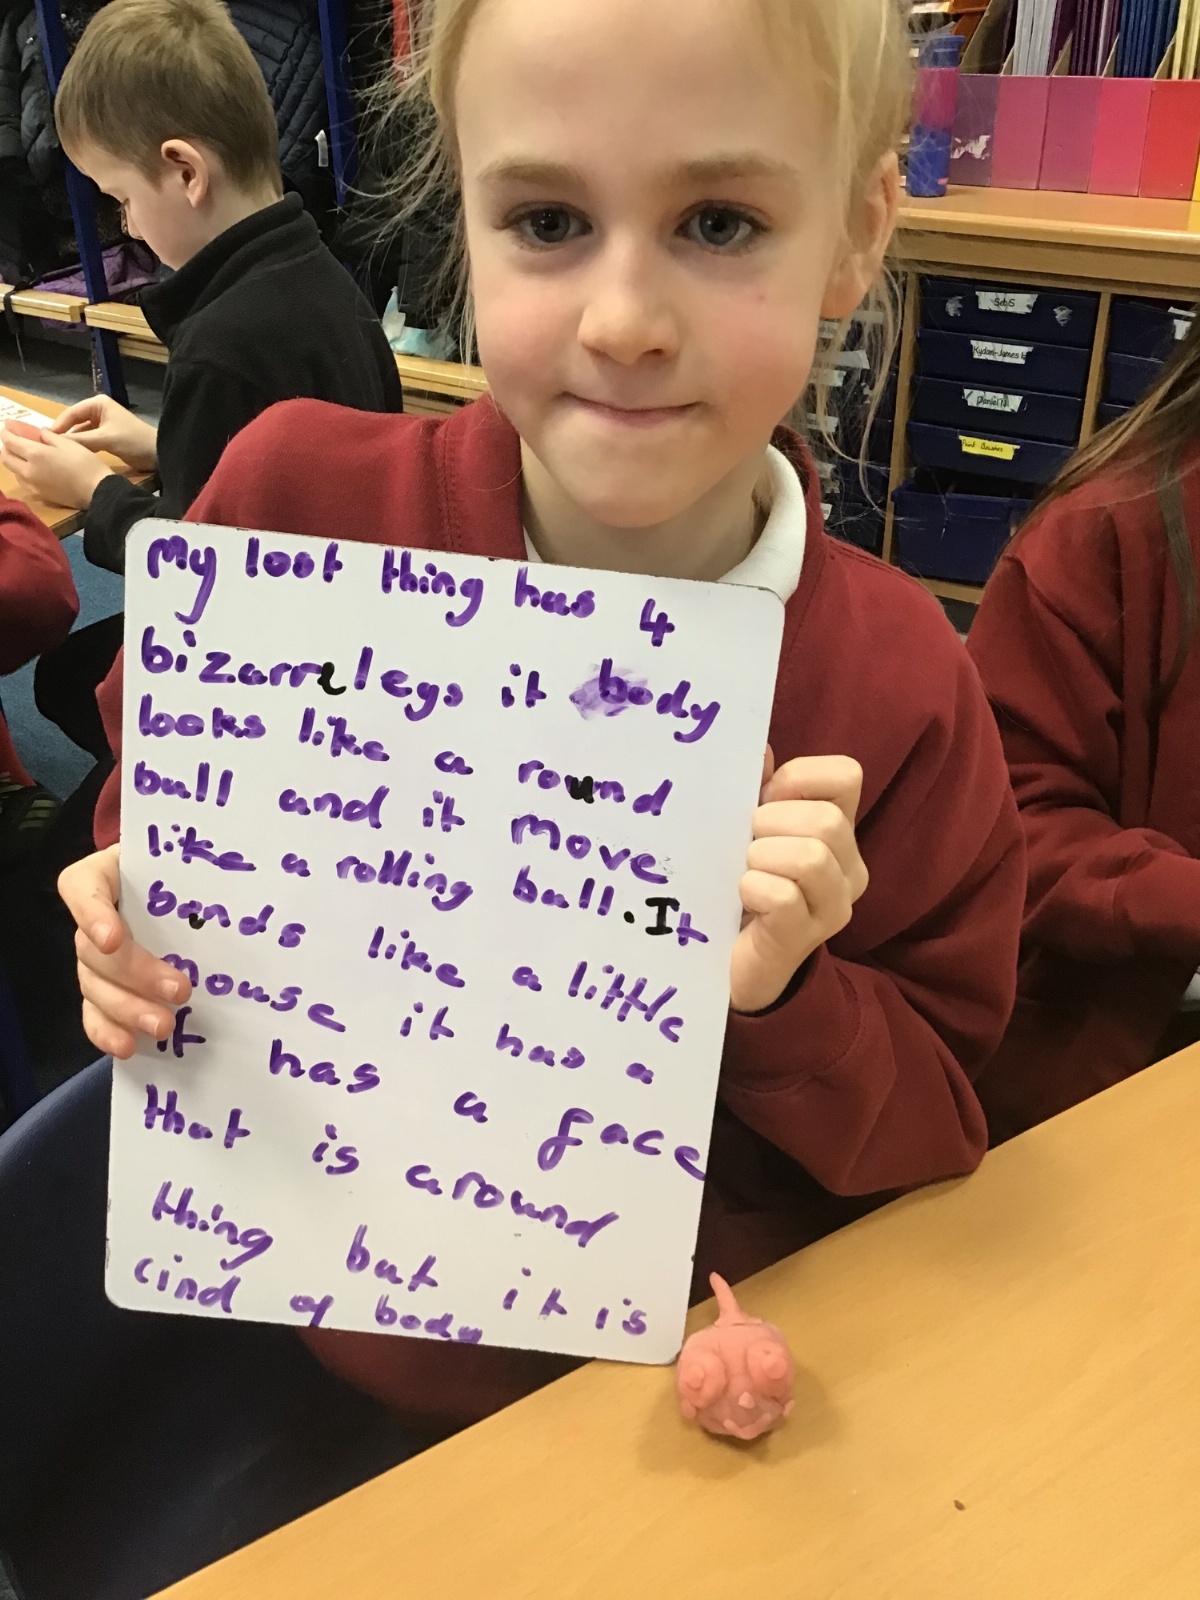 My loot thing has 4
bizarre legs it body
looks like a round
ball and it move
like a rolling ball. It
sands like a little
mouse it has a
it has a face
that is around
thing but it is
cind of body
Kydan-James E
Daniel N
Paint Brushes